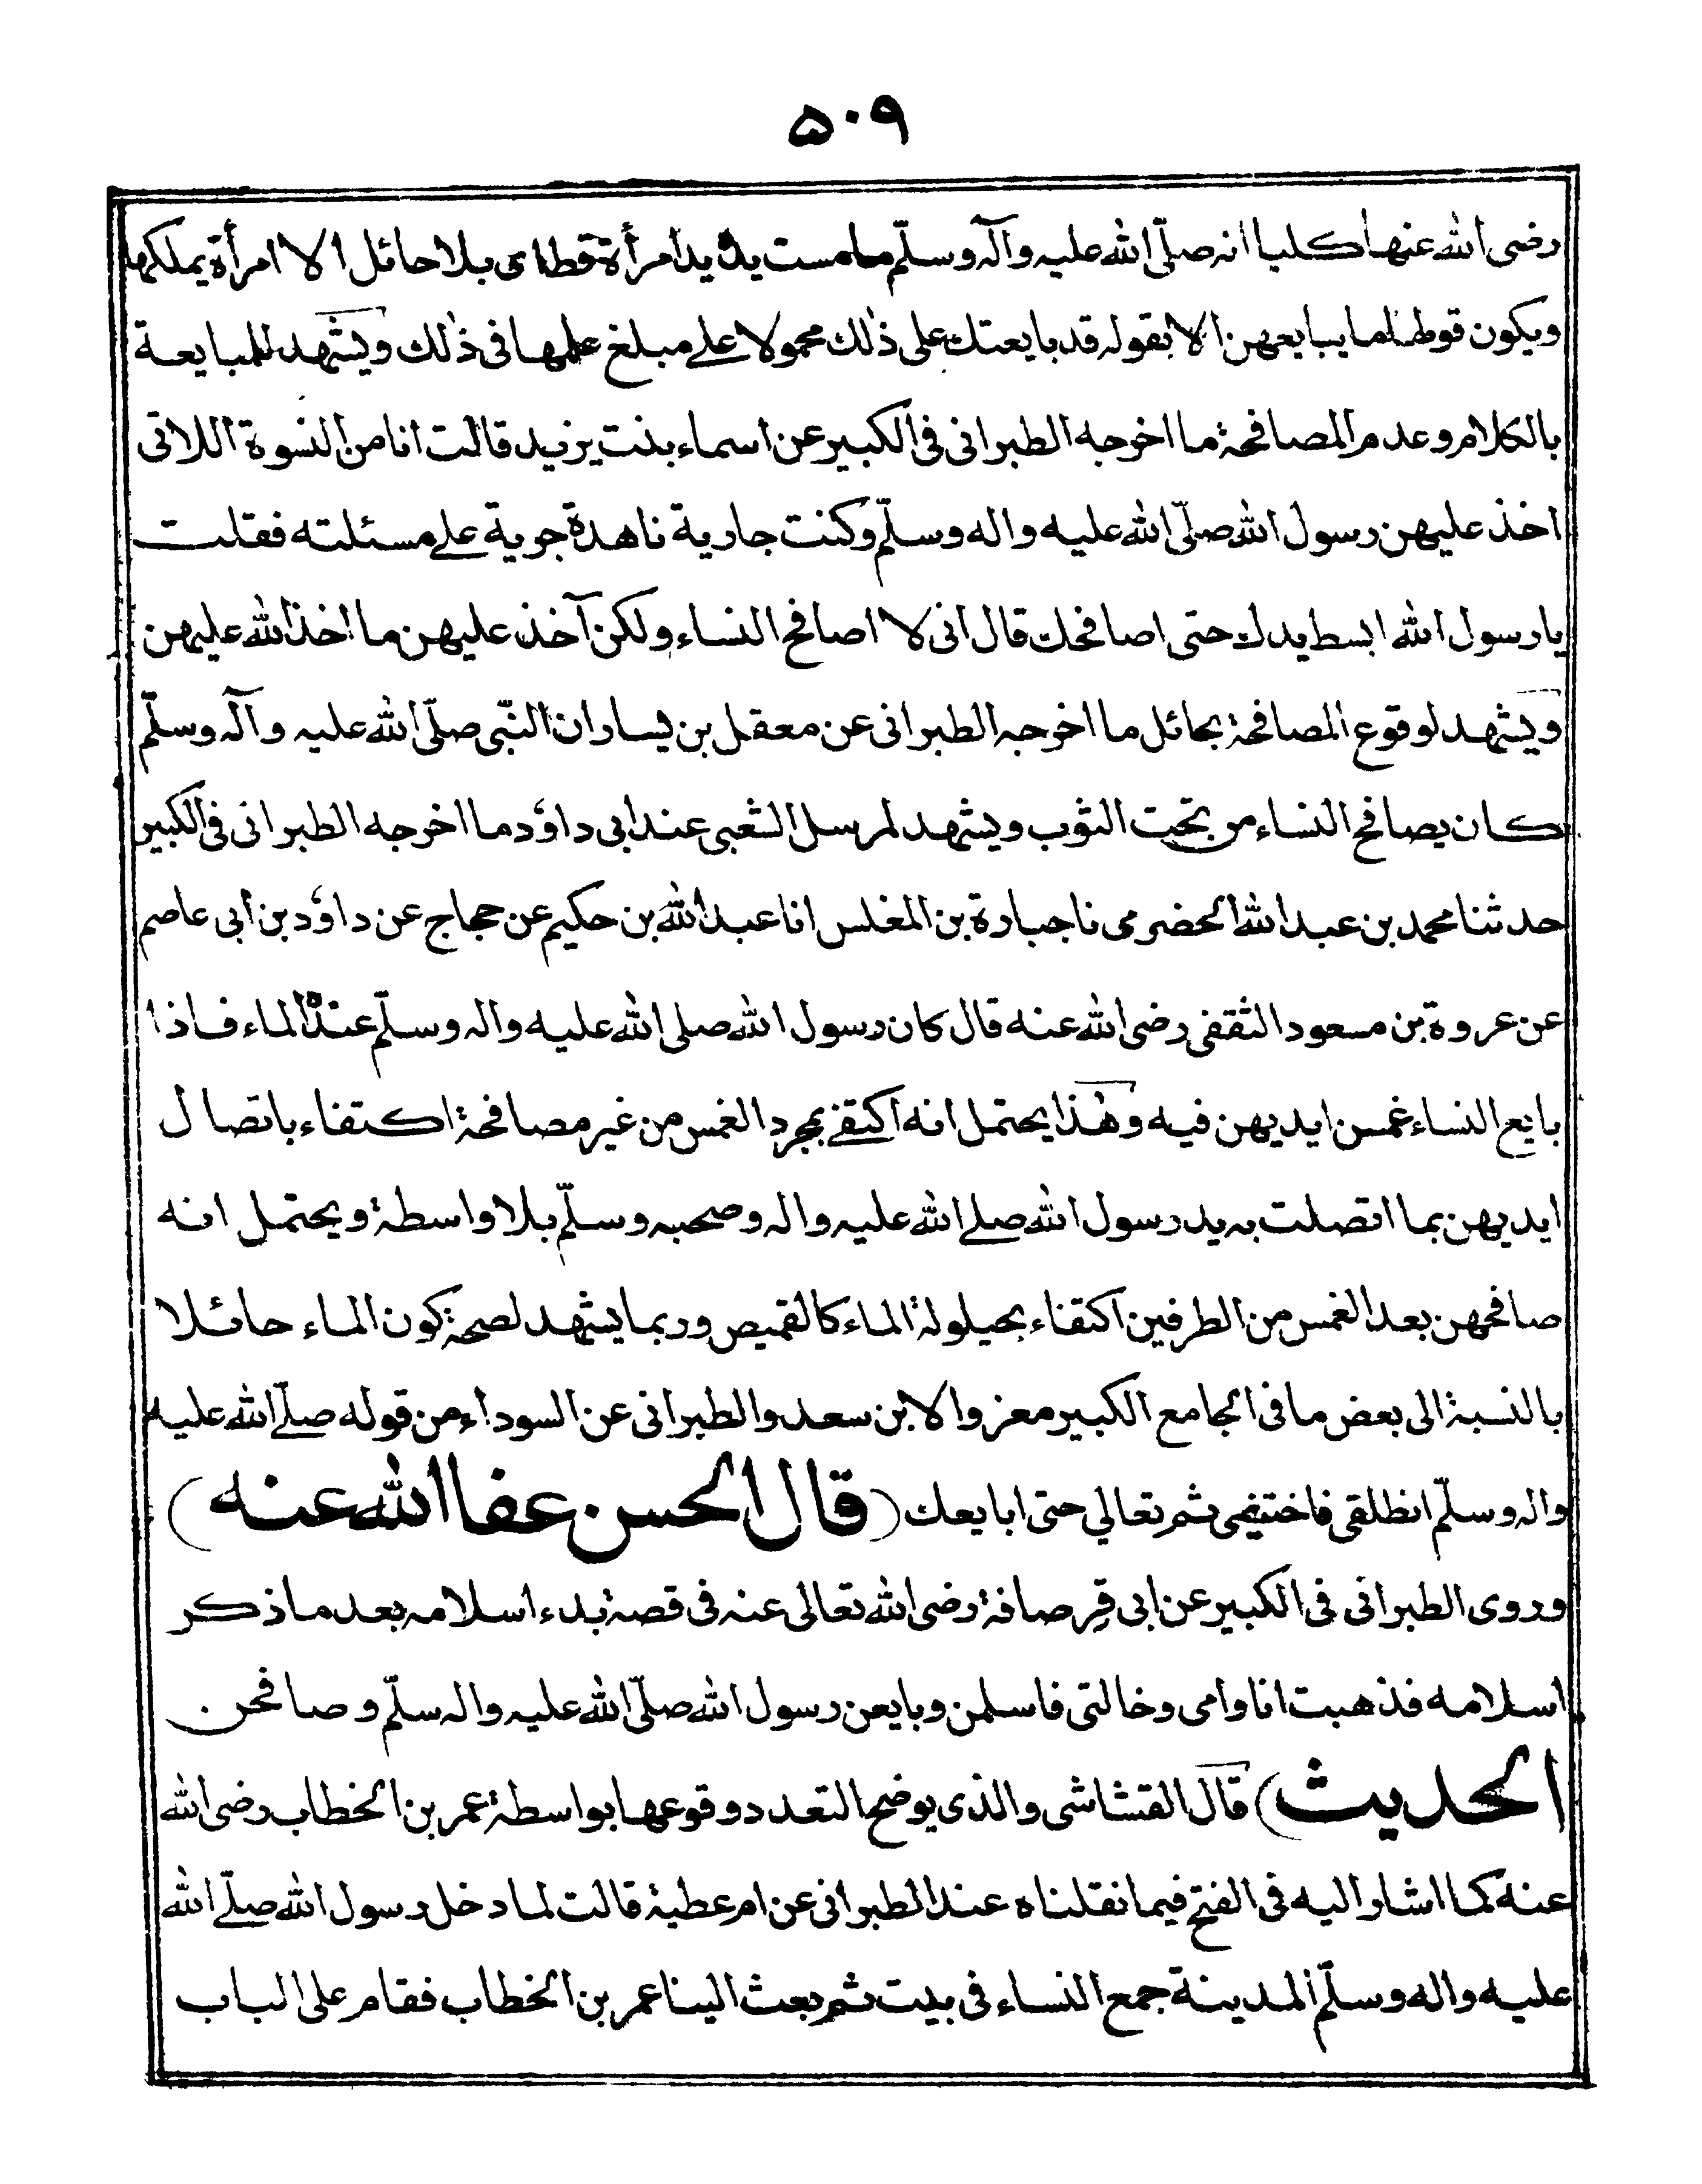 ۵۰۹
رضى الله عنها كليا انه صلّى الله عليه وآله وسلّم مامست يده يد امرأة قط اى بلا حائل الا امرأة يملكها
ويكون قوطا لما يبايعهن الا بقوله قد بايعتك على ذلك محمولا علے مبلغ علمها فى ذلك ويشهد للمبايعة
بالكلام وعدم المصافحة ما اخرجه الطبرانى فى الكبير عن اسماء بنت يزيد قالت انا من النسوة اللاتى
اخذ عليهن رسول الله صلّى الله عليه واله وسلّم وكنت جارية ناهدة جرية علے مسئلته فقلت
يا رسول الله ابسط يدك حتى اصافحك قال انى لا اصافح النساء ولكن آخذ عليهن ما اخذ الله عليهن
ويشهد لوقوع المصافحة بحائل ما اخرجه الطبرانى عن معقل بن يسار ان النّبى صلّى الله عليه وآله وسلّم
كان يصافح النساء من تحت الثوب ويشهد لمرسل الشعبى عند ابى داوٗد ما اخرجه الطبرانى فى الكبير
حدثنا محمد بن عبد الله الحضرمى نا جبارة بن المغلس انا عبد الله بن حكيم عن حجاج عن داوٗد بن ابى عاصم
عن عروة بن مسعود الثقفى رضى الله عنه قال كان رسول الله صلى الله عليه واله وسلّم عنده الماء فاذا
بايع النساء غمسن ايديهن فيه وهٰذا يحتمل انه اكتفے بمجرد الغمس من غير مصافحة اكتفاء باتصال
ايديهن بما اتصلت به يد رسول الله صلے الله عليه واله وصحبه وسلّم بلا واسطة ويحتمل انه
صافحهن بعد الغمس من الطرفين اكتفاء بحيلولة الماء كالقميص وربما يشهد لصحة كون الماء حائلا
بالنسبة الى بعض ما فى الجامع الكبير معزوا لابن سعد والطبرانى عن السوداء من قوله صلّے الله عليه
واله وسلّم انطلقى فاختضبى ثم تعالي حتى ابايعك (قال الحسن عفا الله عنه)
وروى الطبرانى فى الكبير عن ابى قرصافة رضى الله تعالى عنه فى قصة بدء اسلامه بعد ما ذكر
اسلامه فذهبت انا وامى وخالتى فاسلمن وبايعن رسول الله صلّى الله عليه واله سلّم وصافحن
الحديث) قال القشاشى والذى يوضح التعدد وقوعها بواسطة عمر بن الخطاب رضى الله
عنه كما اشار اليه فى الفتح فيما نقلناه عند الطبرانى عن ام عطية قالت لما دخل رسول الله صلّے الله
عليه واله وسلّم المدينة جمع النساء فى بيت ثم بعث الينا عمر بن الخطاب فقام على الباب